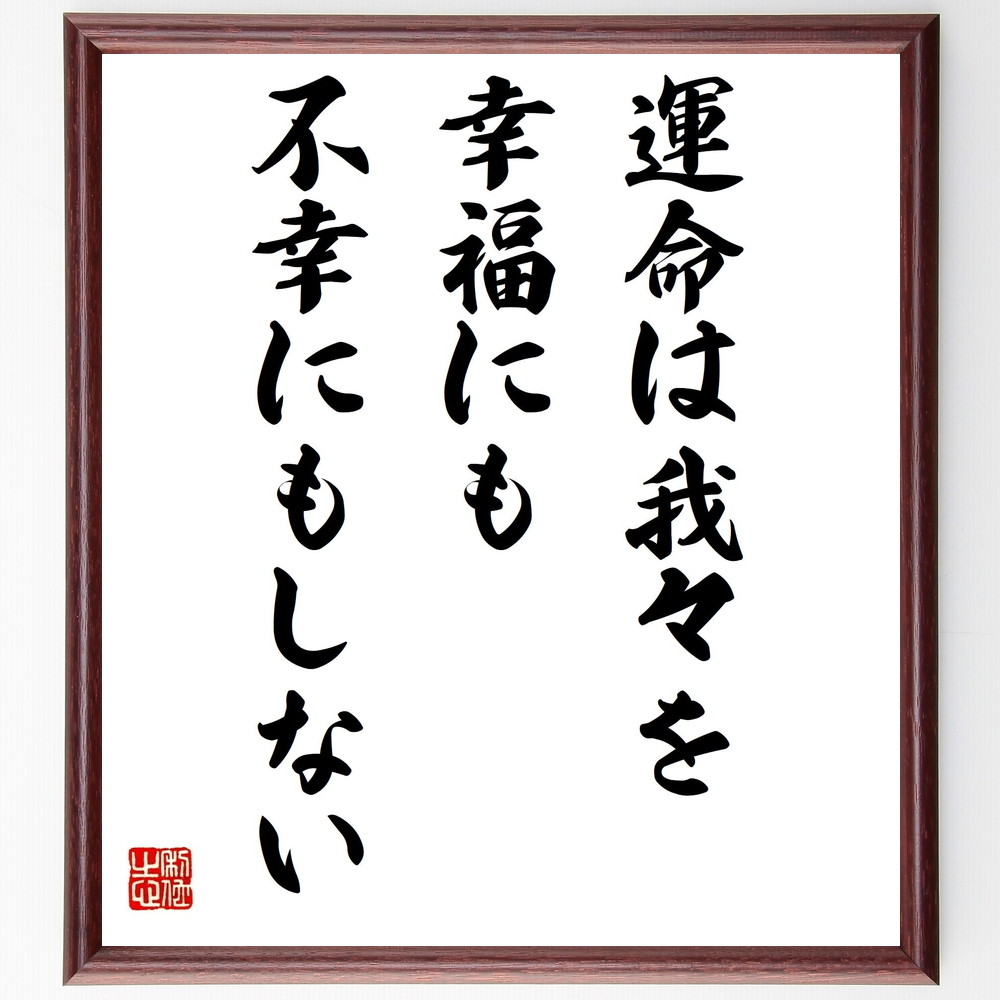 運命は我々を
幸福にも
不幸にもしない